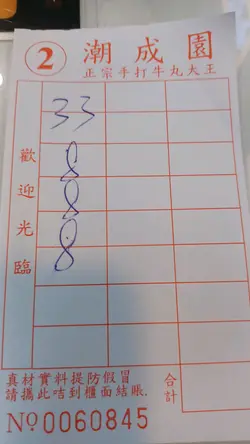 ② 潮成園
正宗手打牛丸大王
33
8
8
8
歡迎光臨
真材實料提防假冒
請攜此咭到櫃面結賬.
合計
Nº 0060845